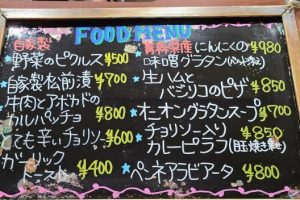 FOOD MENU
自家製
野菜のピクルス ¥500
自家製松前漬 ¥700
牛肉とアボカドの
カルパッチョ ¥800
とても辛いチョリソー ¥600
ガーリック
トースト ¥400
青森県産にんにくの ¥980
グラタン
生ハムと
バジリコのピザ ¥850
オニオングラタンスープ ¥700
チョリソー入り ¥850
カレーピラフ
ペンネアラビアータ ¥800